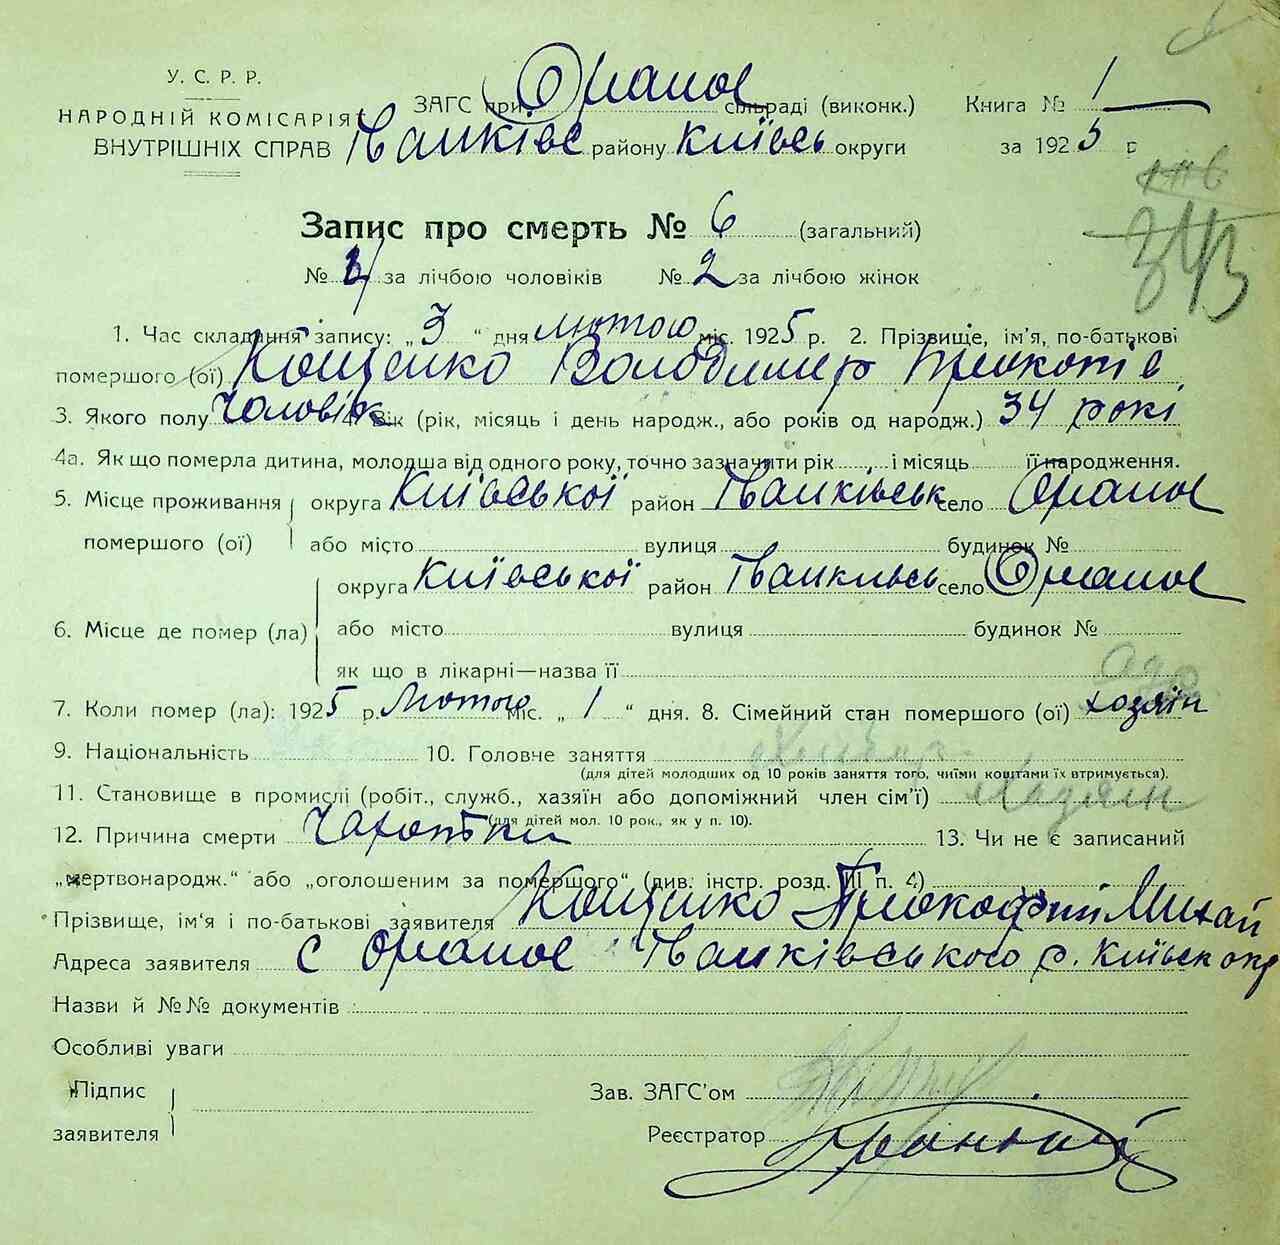 У. С. Р. Р.
НАРОДНІЙ КОМІСАРІЯТ
ВНУТРІШНІХ СПРАВ
ЗАГС при Ораное сільраді (виконк.)
Іванківс району Київсь округи
Книга № 1
за 1925 р
Запис про смерть № 6 (загальний)
№ 4 за лічбою чоловіків № 2 за лічбою жінок
1. Час складання запису: „ 3 “ дня лютого міс. 1925 р. 2. Прізвище, ім'я, по-батькові
помершого (ої) Кощенко Володимир Прокопів
3. Якого полу Чоловік 4. Вік (рік, місяць і день народж., або років од народж.) 34 рокі
4а. Як що померла дитина, молодша від одного року, точно зазначити рік і місяць її народження.
5. Місце проживання помершого (ої) округа Київської район Іванківськ село Ораное
або місто вулиця будинок №
6. Місце де помер (ла) округа Київської район Іванкивсь село Ораное
або місто вулиця будинок №
як що в лікарні—назва її
7. Коли помер (ла): 1925 р. Лютого міс. „ 1 “ дня. 8. Сімейний стан помершого (ої) хозяїн
9. Національність 10. Головне заняття
(для дітей молодших од 10 років заняття того, чиїми коштами їх втримується).
11. Становище в промислі (робіт., служб., хазяїн або допоміжний член сім'ї) Хазяїн
(для дітей мол. 10 рок., як у п. 10).
12. Причина смерти Чахотки 13. Чи не є записаний
„мертвонародж.“ або „оголошеним за помершого“ (див. інстр. розд. III п. 4)
Прізвище, ім'я і по-батькові заявителя Кощенко Прокофий Михай
Адреса заявителя с Ораное Іванківського р. Київськ окр
Назви й №№ документів
Особливі уваги
Підпис
заявителя
Зав. ЗАГС'ом
Реєстратор